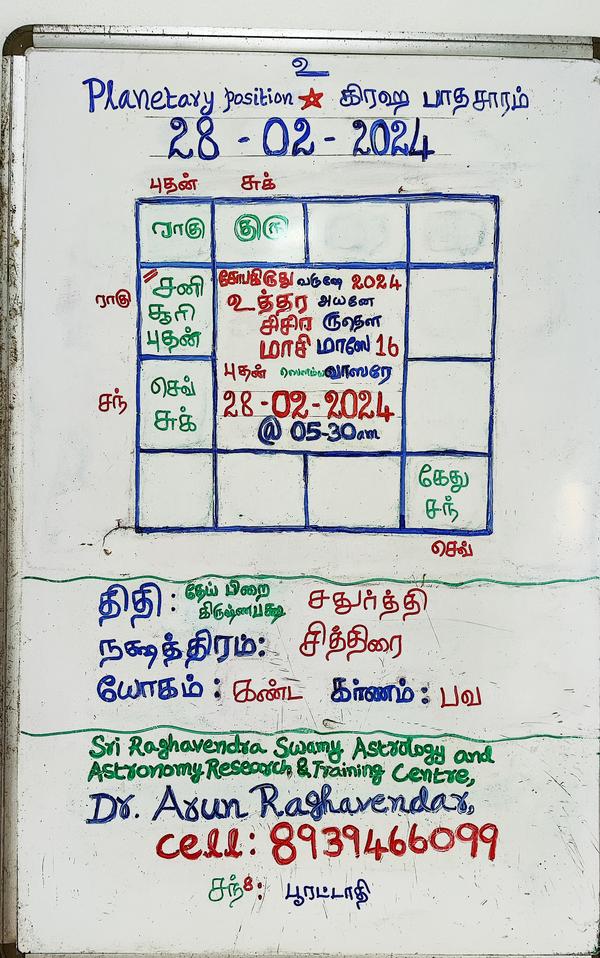 உ
Planetary position ☆ கிரஹ பாதசாரம்
28 - 02 - 2024
புதன் சுக்
ராகு குரு
ராகு
சனி
சூரி
புதன்
சோபகிருது வருஷே 2024
உத்தர அயனே
சிசிர ருதௌ
மாசி மாஸே 16
புதன் ஸௌம்ய வாஸரே
28-02-2024
@ 05-30am
சந்
செவ்
சுக்
கேது
சந்
செவ்
திதி: தேய் பிறை சதுர்த்தி
கிருஷ்ணபக்ஷ
நக்ஷத்திரம்: சித்திரை
யோகம்: கண்ட கர்ணம்: பவ
Sri Raghavendra Swamy Astrology and
Astronomy Research & Training Centre,
Dr. Arun Raghavendar,
cell: 8939466099
சந்8: பூரட்டாதி